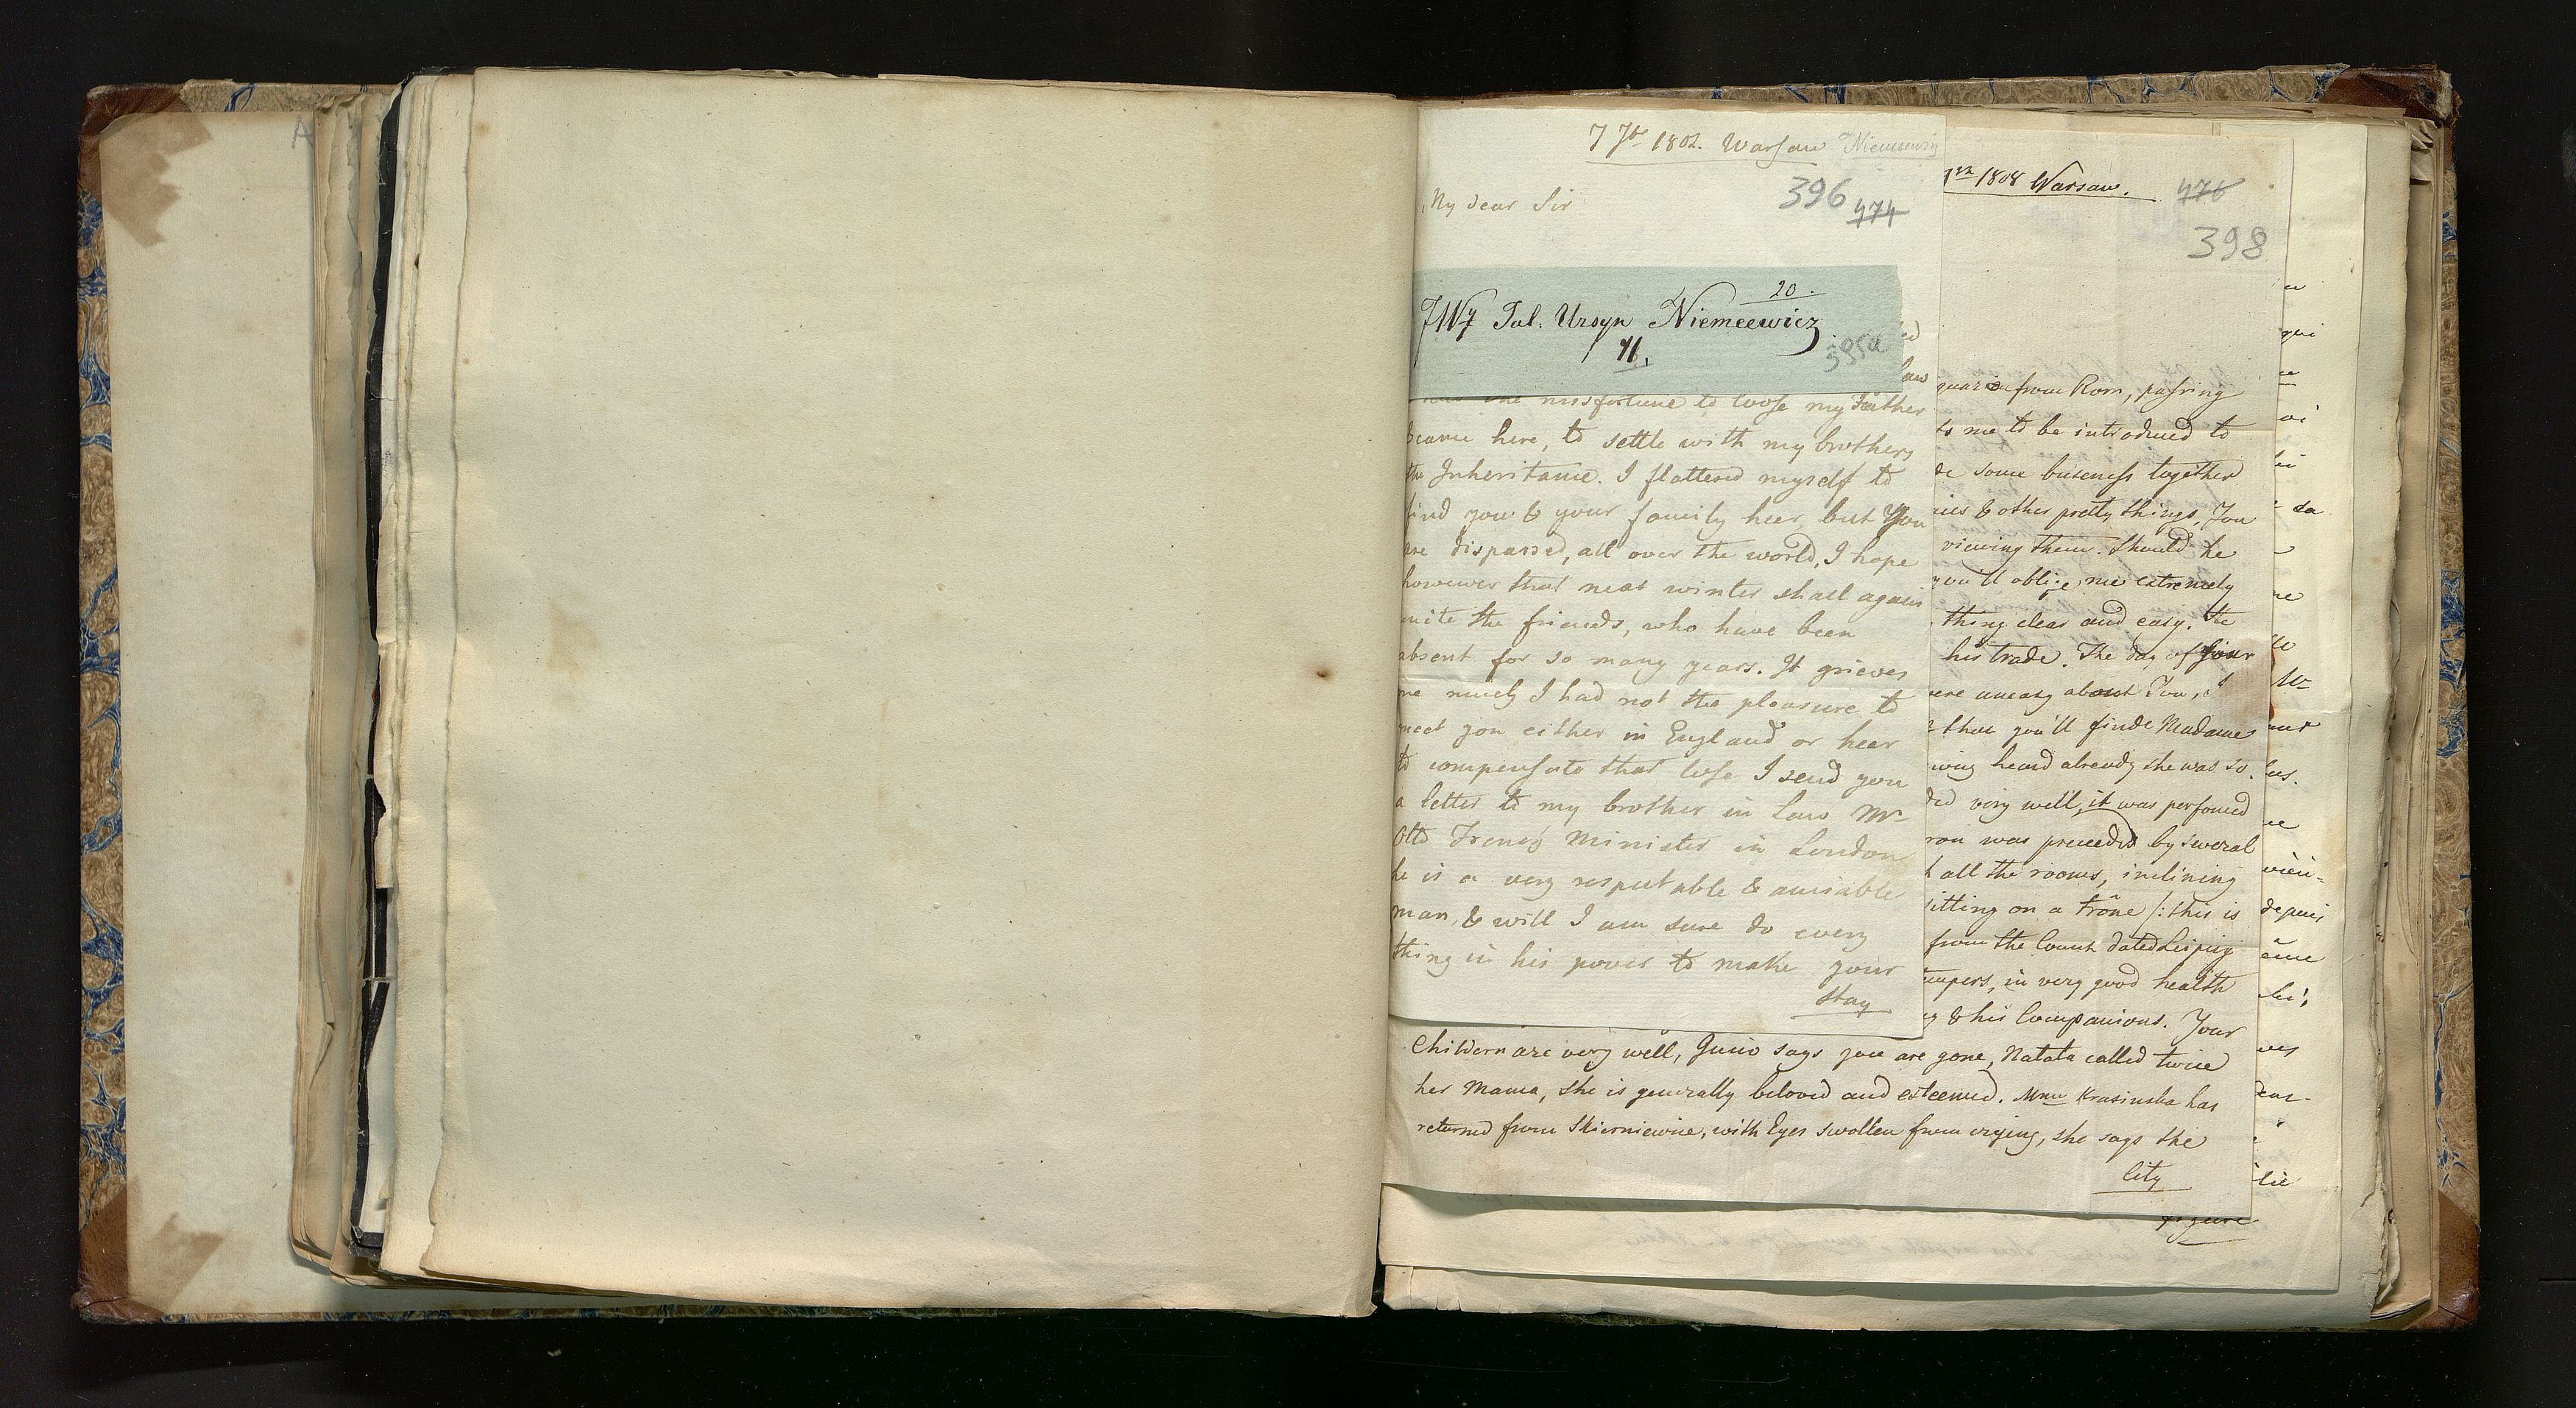 7 7br 1802. Warsaw Niemcewicz
My dear Sir
396 474
20.
JWJ Jul. Ursyn Niemcewicz
71.
395a
ed
law
the misfortune to loose my Father
came here, to settle with my brothers
the Inheritance. I flattered myself to
find you & your family hear, but You
are dispersed, all over the world, I hope
howewer that next winter shall again
unite the friends, who have been
absent for so many years. It grieves
me much I had not the pleasure to
meet you either in England or hear
to compensate that lose I send you
a letter to my brother in Law Mr
Otto French Minister in London
he is a very respectable & amiable
man, & will I am sure do every
thing in his power to make your
stay
1808 Warsaw.
476
398
from Rom, passing
to me to be introduced to
some buseness together
& other pretty things, You
viewing them. Should he
you'll oblige me extremely
thing clear and easy. the
his trade. The day of Your
were uneasy about You, I
you'll finde Madame
heard already she was so.
did very well, it was perfomed
was preceeded by several
all the rooms, inclining
sitting on a trône /: this is
from the Count dated Leipzig
in very good health
& his Companions. Your
Childern are very well, Gucio says you are gone, Natata called twice
her Mama, she is generally beloved and esteemed. Mme Krasinska has
returned from Skierniewice, with Eyes swollen from crying, she says the
City
qui
sa
ne
Mr
depuis